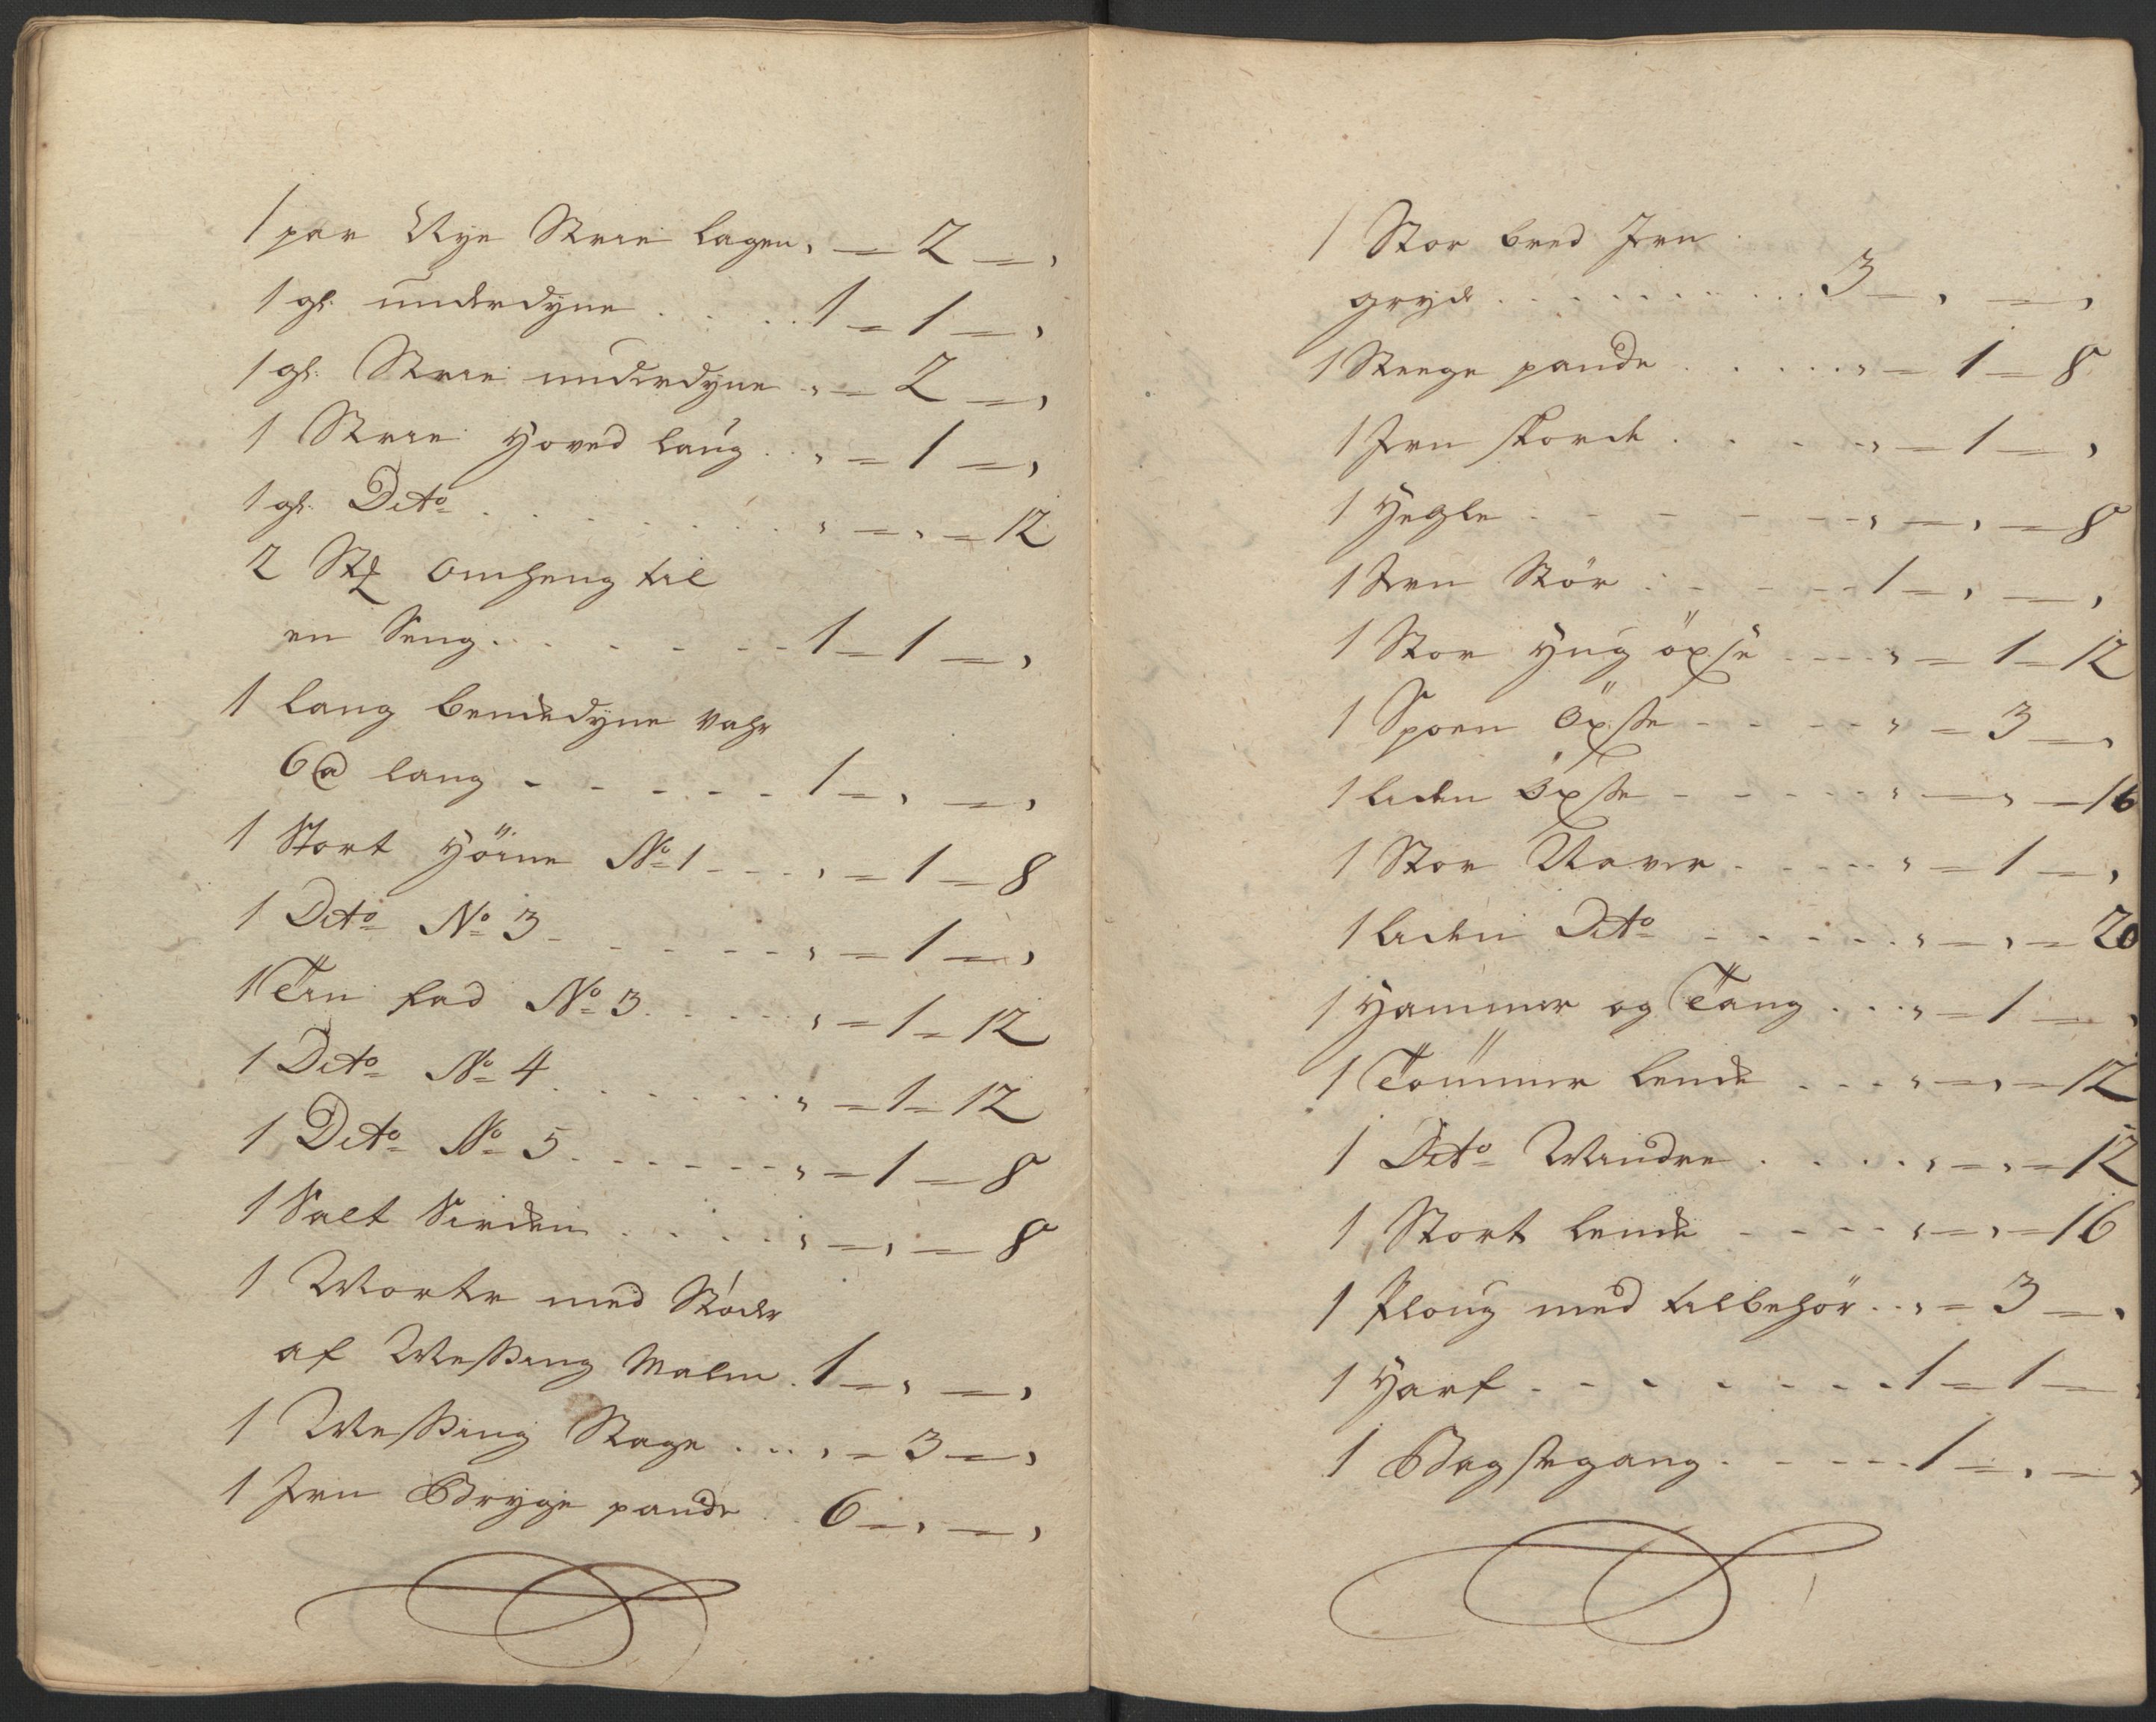 1 par Nye Strie lagen , = 2 = ,
1 gl. underdyne . . . . 1 = 1 = ,
1 gl. Strie underdyne , = 2 = ,
1 Strie Hoved laug . . , = 1 = ,
1 gl. Dito . . . . . . . , = , = 12
2 St Omheng til
en Seng . . . . . . 1 = 1 = ,
1 lang benchedyne vahr
6 @ lang - - - - - 1 = , = ,
1 Stort Höine No 1 - - - , = 1 = 8
1 Dito No 3 - - - - - , = 1 = ,
1 Tin fad No 3 . . . . . , = 1 = 12
1 Dito No 4 . . . . . . , = 1 = 12
1 Dito No 5 . - - - - - , = 1 = 8
1 Salt Sirken . . . . , = , = 8
1 Morter med Stöder
af Messing Malm . 1 = , = ,
1 Messing Stage . . . , = 3 = ,
1 Jern Brygge pande . . 6 = , = ,
1 Stor bred Jern
gryde . . . . . . . . . 3 = , = ,
1 Steege pande . . . . . , = 1 = 8
1 Jern skorde . . . . , = 1 = ,
1 Hegle - - - - - - , = , = 8
1 Jern Stör . - - - - 1 = , = ,
1 Stor Hug öxse - - - , = 1 = 12
1 Spoen Öxsse - - - - , = 3 = ,
1 liden Öxsse - - - - - , = , = 16
1 Stor Naver . - - - - , = 1 = ,
1 liden Dito - - - - - , = , = 20
1 Hammer og Tang . . . , = 1 = ,
1 Tömmer lenke . . . , = , = 12
1 Dito Mindre . . . . , = , = 12
1 Stort lenke - - - - , = , = 16
1 Ploug med tilbehör . . , = 3 = ,
1 Harf . - - - - - - 1 = 1 =
1 Bagstegang . - - - - 1 = , = ,